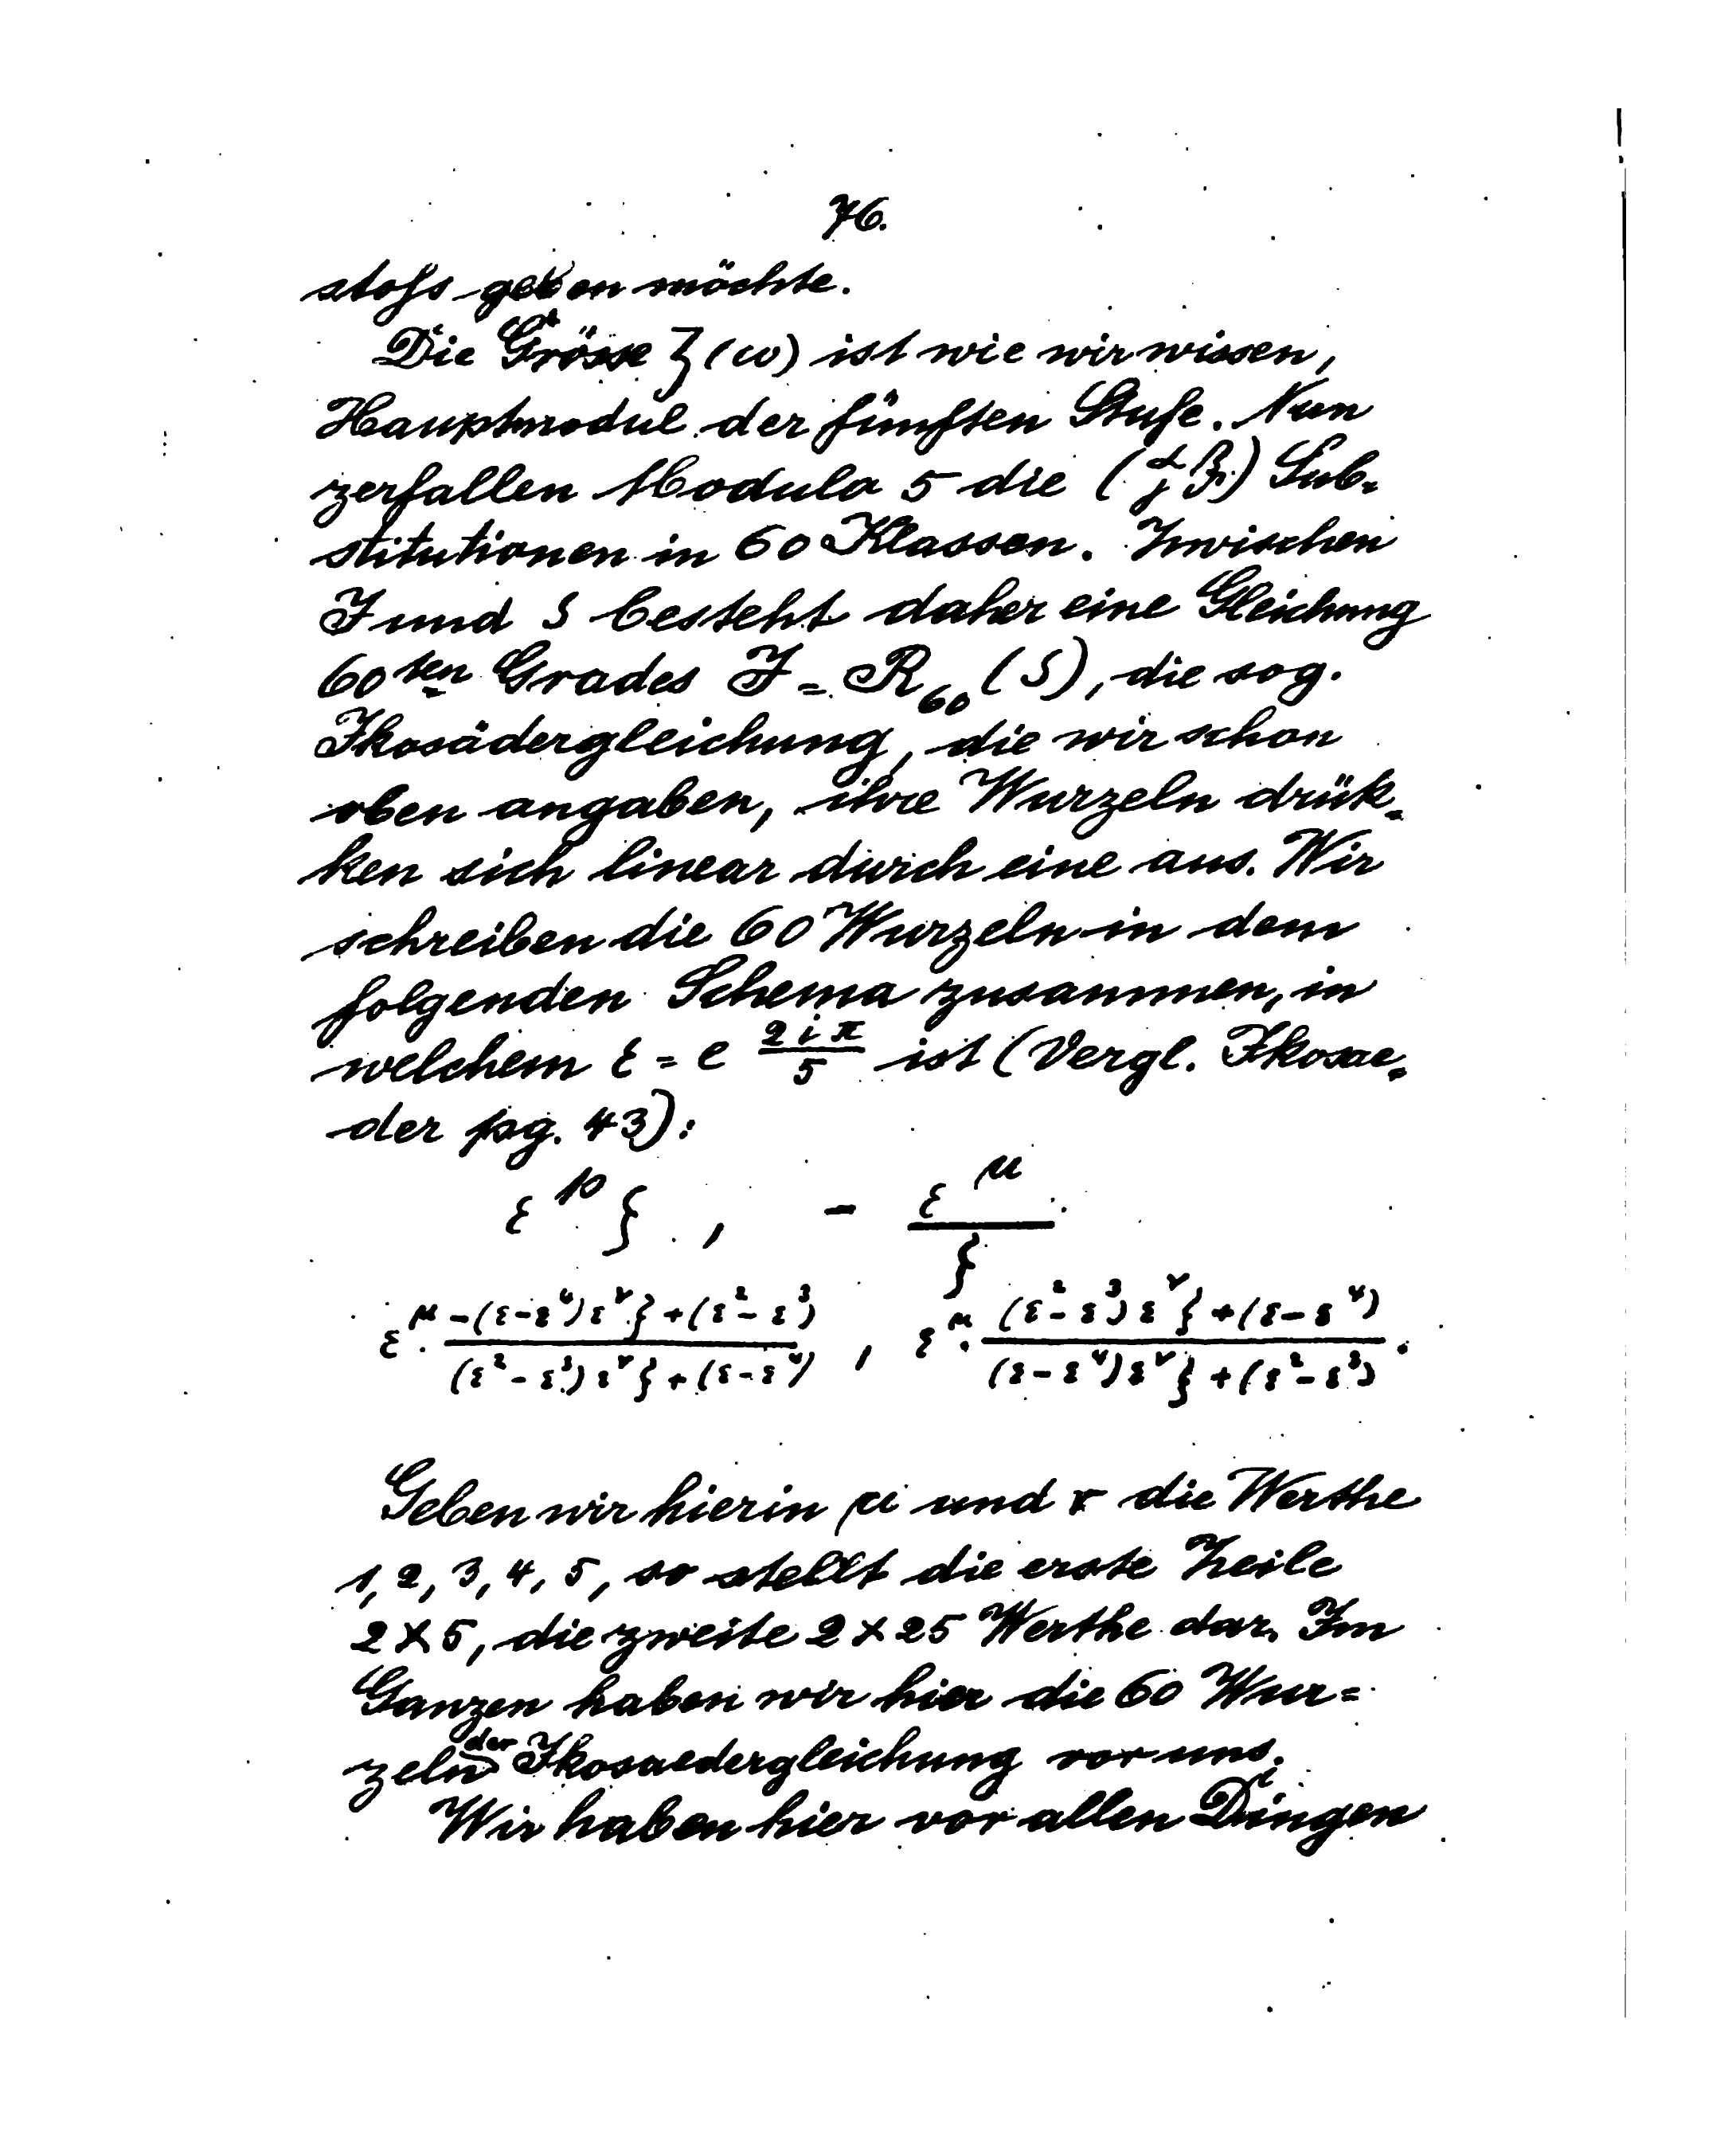 76.
stoss geben möchte.
Die Grösse ζ(ω) ist wie wir wissen,
Hauptmodul der fünften Stufe. Nun
zerfallen Modula 5 die (α β γ δ) Sub-
stitutionen in 60 Klassen. Zwischen
J und ζ besteht daher eine Gleichung
60ten Grades J = R₆₀(ζ), die sog.
Ikosädergleichung, die wir schon
oben angaben, ihre Wurzeln drük-
ken sich linear durch eine aus. Wir
schreiben die 60 Wurzeln in dem
folgenden Schema zusammen, in
welchem ε = e^(2iπ/5) ist (Vergl. Ikosae-
der pg. 43):
ε^10 ζ , - ε^μ/ζ
ε^μ · (-(ε-ε⁴)ε^ν ζ + (ε²-ε³))/((ε²-ε³)ε^ν ζ + (ε-ε⁴)) , ε^μ · ((ε²-ε³)ε^ν ζ + (ε-ε⁴))/((ε-ε⁴)ε^ν ζ + (ε²-ε³)).
Geben wir hierin μ und ν die Werthe
1, 2, 3, 4, 5, so stellt die erste Zeile
2×5, die zweite 2×25 Werthe dar. Im
Ganzen haben wir hier die 60 Wur=
zeln der Ikosaedergleichung vor uns.
Wir haben hier vor allen Dingen